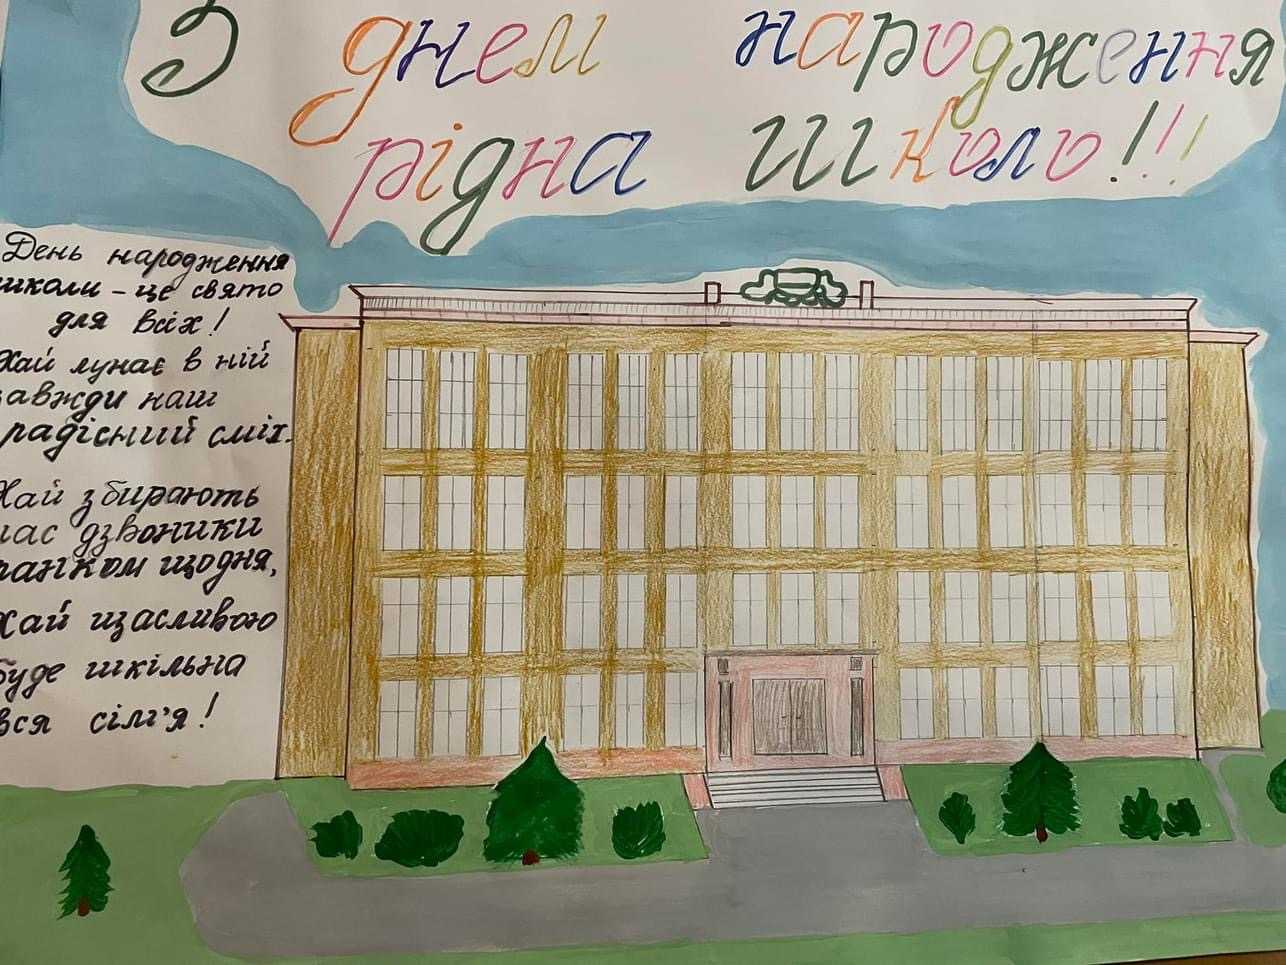 З днем народження
рідна школо!!!
День народження
школи - це свято
для всіх!
Хай лунає в ній
завжди наш
радісний сміх.
Хай збирають
нас дзвоники
ранком щодня,
Хай щасливою
буде шкільна
вся сім'я!